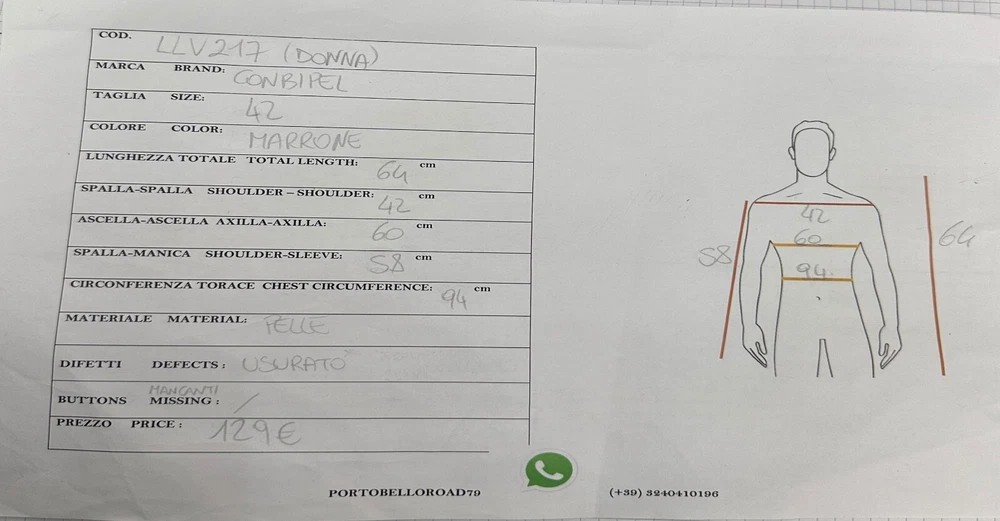 COD. LLV217 (DONNA)
MARCA BRAND: CONBIPEL
TAGLIA SIZE: 42
COLORE COLOR: MARRONE
LUNGHEZZA TOTALE TOTAL LENGTH: 64 cm
SPALLA-SPALLA SHOULDER – SHOULDER: 42 cm
ASCELLA-ASCELLA AXILLA-AXILLA: 60 cm
SPALLA-MANICA SHOULDER-SLEEVE: 58 cm
CIRCONFERENZA TORACE CHEST CIRCUMFERENCE: 94 cm
MATERIALE MATERIAL: PELLE
DIFETTI DEFECTS: USURATO
MANCANTI
BUTTONS MISSING: /
PREZZO PRICE: 129€
42
60
58
64
94
PORTOBELLOROAD79 (+39) 3240410196